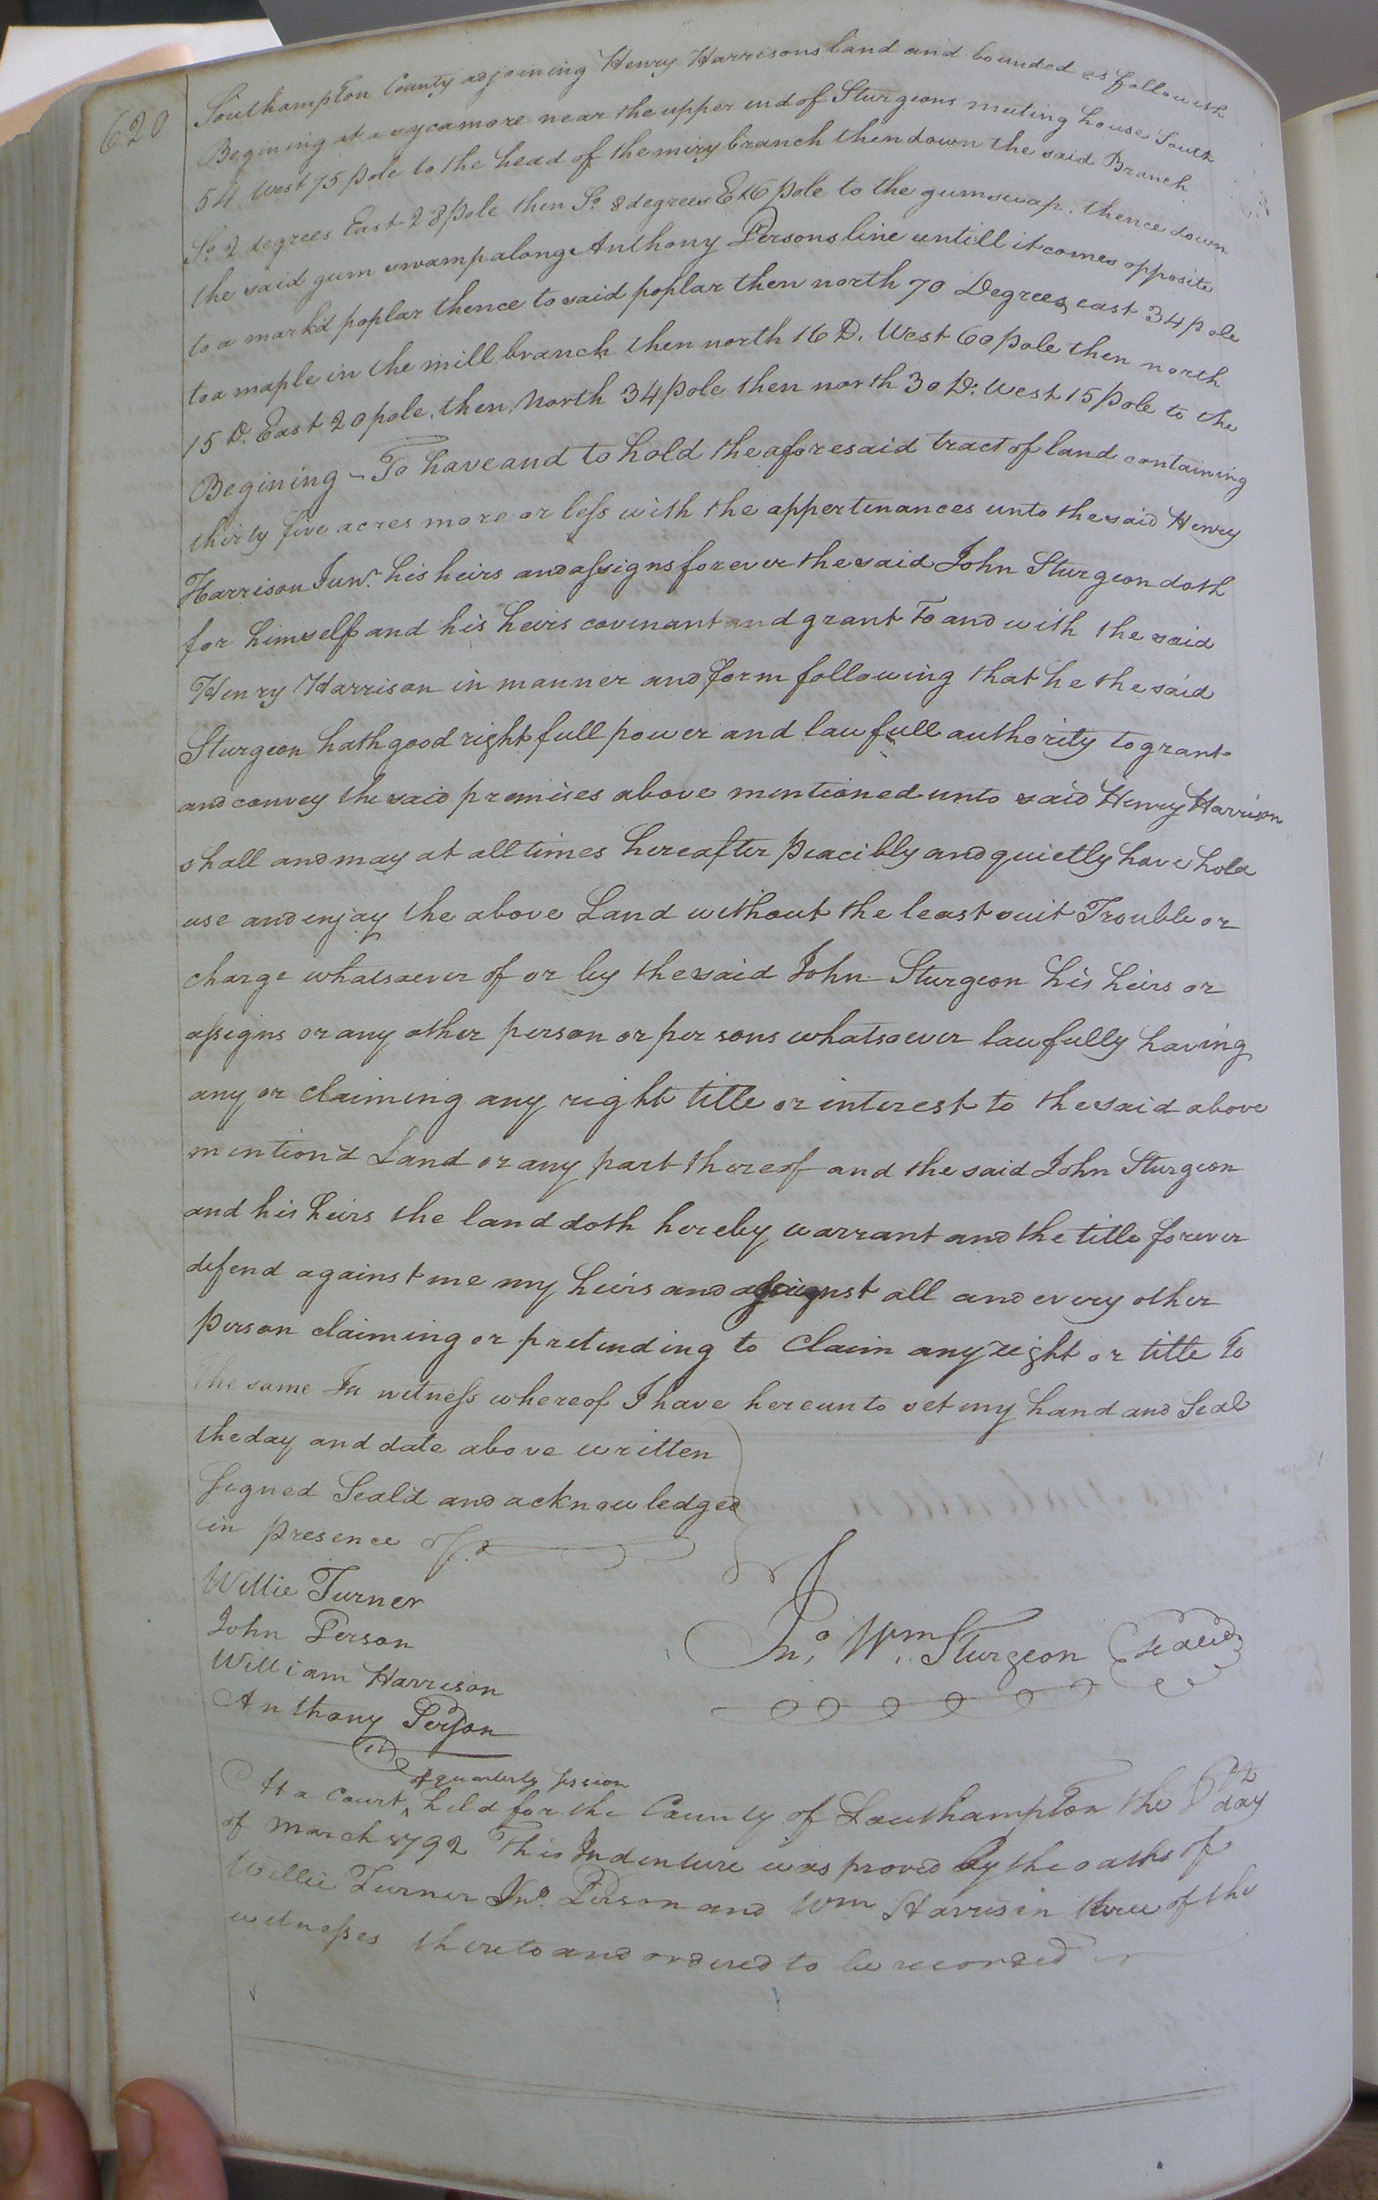 620
Southampton County adjoining Henry Harrisons land and bounded as followith
Begining at a sycamore near the upper end of Sturgeons meeting house South
54 West 75 pole to the head of the miry branch then down the said Branch
So. 2 degrees East 28 pole then So. 8 degrees E 16 pole to the gum swap. thence down
the said gum swamp along Anthony Persons line untill it comes opposite
to a mark'd poplar thence to said poplar then north 70 Degrees east 34 pole
to a maple in the mill branch then north 16 D. West 60 pole then north
15 D. East 20 pole. then North 34 pole then north 30 D: West 15 pole to the
Begining - To have and to hold the aforesaid tract of land containing
thirty five acres more or less with the appertinances unto the said Henry
Harrison Junr. his heirs and assigns forever the said John Sturgeon doth
for himself and his heirs covenant and grant To and with the said
Henry Harrison in manner and form following that he the said
Sturgeon hath good right full power and law full authority to grant
and convey the said premises above mentioned unto said Henry Harrison
shall and may at all times hereafter peacibly and quietly have hold
use and enjoy the above Land without the least suit Trouble or
charge whatsoever of or by the said John Sturgeon his heirs or
assigns or any other person or persons whatsoever lawfully having
any or claiming any right title or interest to the said above
mention'd Land or any part thereof and the said John Sturgeon
and his heirs the land doth hereby warrant and the title forever
defend against me my heirs and against all and every other
Person claiming or pretending to Claim any right or title To
the same In witness whereof I have hereunto set my hand and Seal
the day and date above written
Signed Seal'd and acknowledged
in presence of
Willie Turner
John Person
William Harrison
Anthony Person
Jno. Wm. Sturgeon (seal)
of quarterly session
At a Court ^ held for the County of Southampton the 8th day
of march 1792 This Indenture was proved by the oaths of
Willie Turner Jno. Person and Wm Harrisin three of the
witnesses thereto and ordered to be recorded